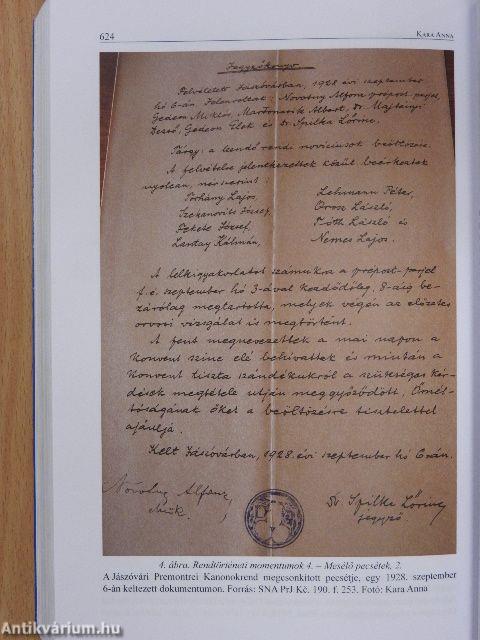 624
KARA ANNA
Jegyzőkönyv
Felvétetett Jászóvárban, 1928 évi szeptember
hó 6-án. Jelenvoltak: Novotny Alfonz prépost-perjel,
Gedeon Miklós, Marton Albert, Dr. Majtányi
Dezső, Gedeon Elek és Dr. Spilka Lőrinc.
Tárgy: a leendő rendi noviciusok beöltözése.
A felvételre jelentkezettek közül beérkeztek
nyolcan, névszerint:
Torhány Lajos,
Lehmann Péter,
Szekanovits József,
Orosz László,
Fekete József,
Tóth László és
Lantay Kálmán,
Nemes Lajos.
A lelkigyakorlatot számukra a prépost-perjel
f. é. szeptember hó 3-ával kezdődőleg, 8-áig be-
zárólag megtartotta, melyek végén az előzetes
orvosi vizsgálat is megtörtént.
A fent megnevezettek a mai napon a
Konvent színe elé behívattak és miután a
Konvent tiszta szándékukról a szükséges kér-
dések megtétele útján meggyőződött, Őmél-
tóságának őket a beöltözésre tisztelettel
ajánlja.
Kelt Jászóvárban, 1928. évi szeptember hó 6-án.
Novotny Alfonz
Dr. Spilka Lőrinc
jegyző
4. ábra. Rendtörténeti momentumok 4. – Mesélő pecsétek, 2.
A Jászóvári Premontrei Kanonokrend megcsonkított pecsétje, egy 1928. szeptember
6-án keltezett dokumentumon. Forrás: SNA PrJ Kč. 190. f. 253. Fotó: Kara Anna
Antikvárium.hu